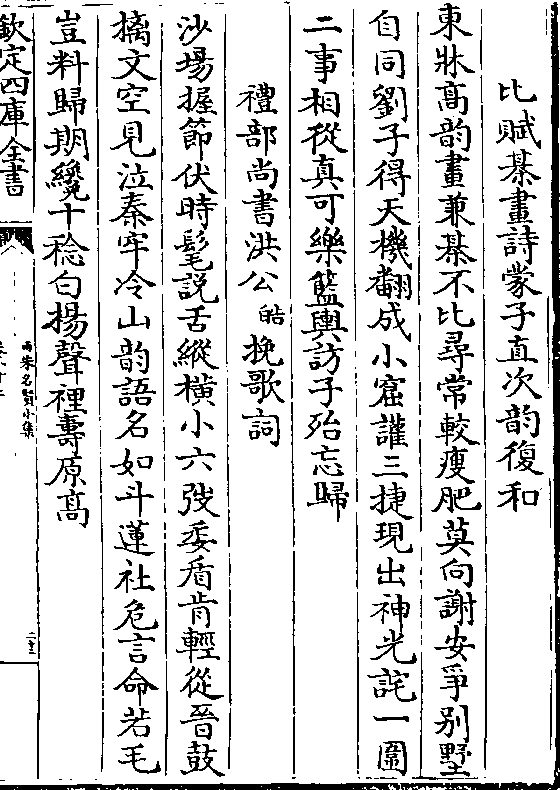 比賦棊畫詩蒙子直次韵復和
東牀高韵畫兼棊不比尋常較瘦肥莫向謝安爭别墅
自同劉子得天機翻成小窟讙三捷現出神光詫一圍
二事相從真可樂籃輿訪子殆忘歸
禮部尚書洪公皓挽歌詞
沙塲握節伏時髦説舌縱横小六弢委盾肯輕從晉鼓
摛文空見泣秦牢冷山韵語名如斗蓮社危言命若毛
豈料歸期纔十稔白揚聲裡壽原高
欽定四庫全書
兩宋名賢小集